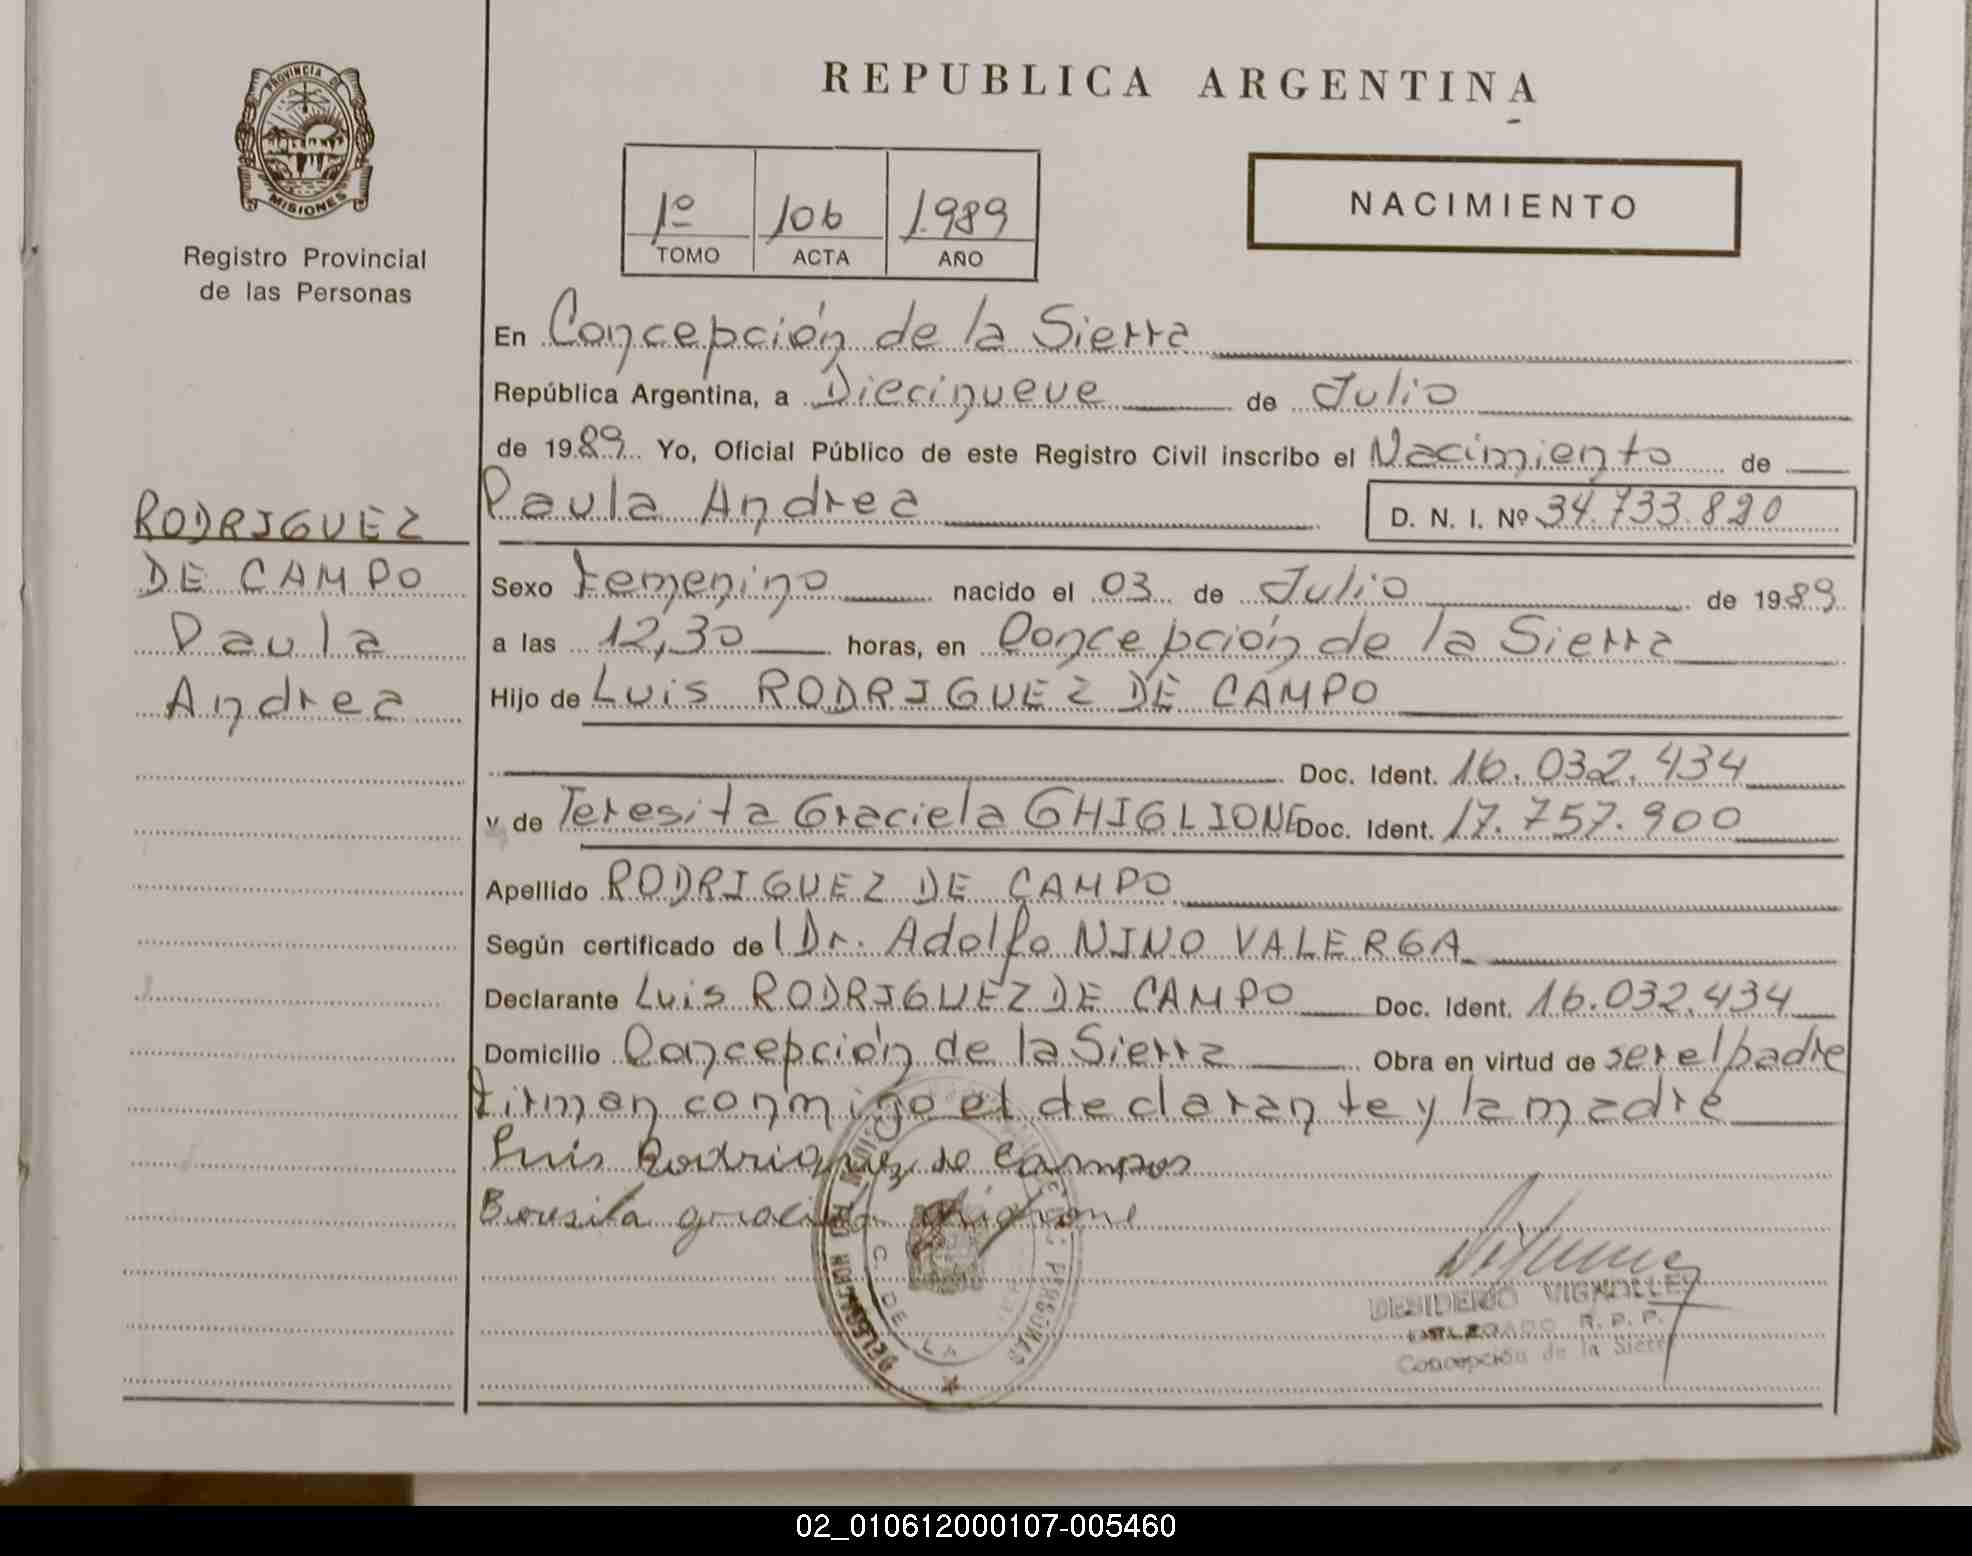 PROVINCIA DE
MISIONES
Registro Provincial
de las Personas
RODRIGUEZ
DE CAMPO
Paula
Andrea
REPUBLICA ARGENTINA
1º 106 1.989
TOMO ACTA AÑO
NACIMIENTO
En Concepción de la Sierra
República Argentina, a Diecinueve de Julio
de 1989 Yo, Oficial Público de este Registro Civil inscribo el Nacimiento de
Paula Andrea D. N. I. Nº 34.733.820
Sexo Femenino nacido el 03 de Julio de 1989
a las 12,30 horas, en Concepción de la Sierra
Hijo de Luis RODRIGUEZ DE CAMPO
Doc. Ident. 16.032.434
y de Teresita Graciela GHIGLIONE Doc. Ident. 17.757.900
Apellido RODRIGUEZ DE CAMPO
Según certificado de l Dr. Adolfo NINO VALERGA
Declarante Luis RODRIGUEZ DE CAMPO Doc. Ident. 16.032.434
Domicilio Concepción de la Sierra Obra en virtud de ser el padre
Firman conmigo el declarante y la madre
Luis Rodriguez de Campos
DELEGACION
C. DE LA
PERSONAS
DESIDERIO VIGNOLLES
DELEGADO R. P. P.
Concepción de la Sierra
02_010612000107-005460